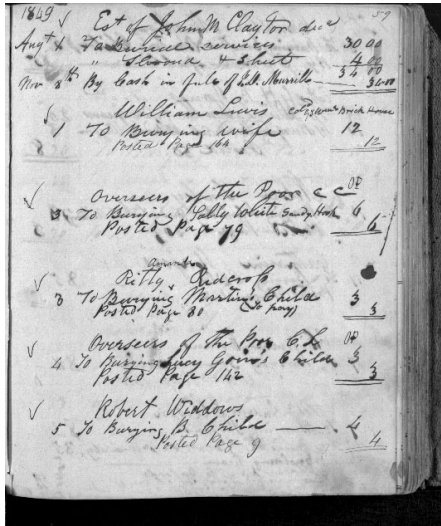 1849 59
Est of John M Claytor decd
Augt 1 To Burial services 30 00
" Shroud & Sheet 4 00
34 00
Nov 8th By Cash in full of 34.00
William Lewis Brick House
1 To Burying wife 12
Posted Page 164 12
Overseers of the Poor C C OP
3 To Burying Sally White Sandy Hook 6
Posted Page 79 6
Amanda
Kitty Redcross
3 To Burying Martin's Child 3
Posted Page 80 3
Overseers of the Poor OP
4 To Burying Lucy Goin's Child 3
Posted Page 142 3
Robert Widdows
5 To Burying B. Child 4
Posted Page 9 4